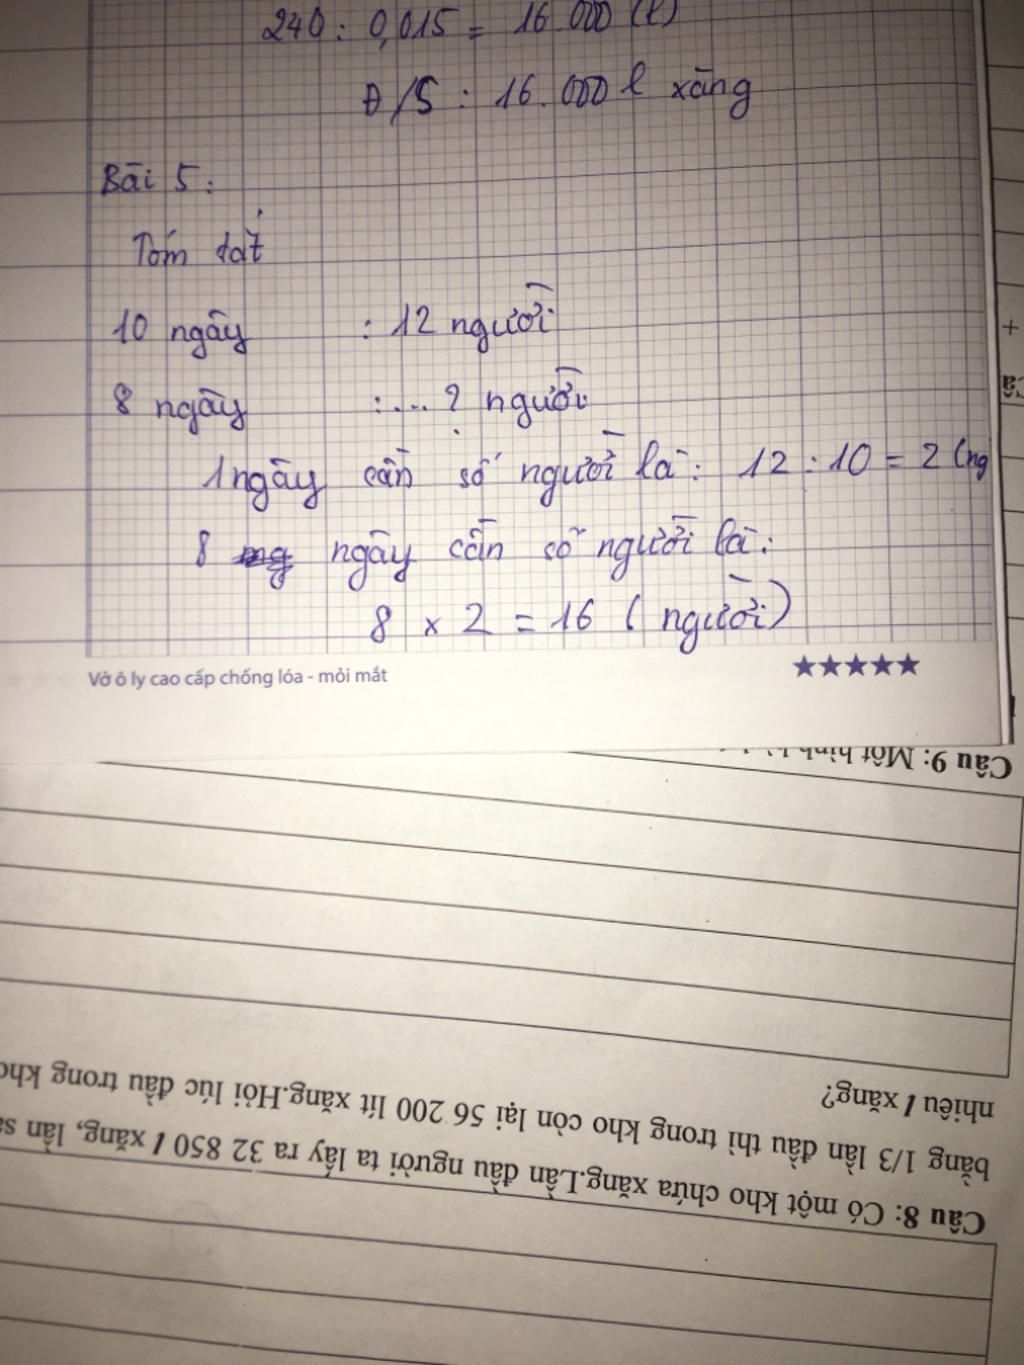 240 : 0,015 = 16.000 (l)
Đ/S : 16.000 l xăng
Bài 5 :
Tóm tắt
10 ngày : 12 người
8 ngày : .... ? người
1 ngày cần số người là : 12 : 10 = 2 (ng
8 ngày cần số người là :
8 x 2 = 16 ( người )
Vở ô ly cao cấp chống lóa - mỏi mắt
★★★★★
Câu 9: Một hình
nhiêu l xăng?
bằng 1/3 lần đầu thì trong kho còn lại 56 200 lít xăng.Hỏi lúc đầu trong kho
Câu 8: Có một kho chứa xăng.Lần đầu người ta lấy ra 32 850 l xăng, lần sa